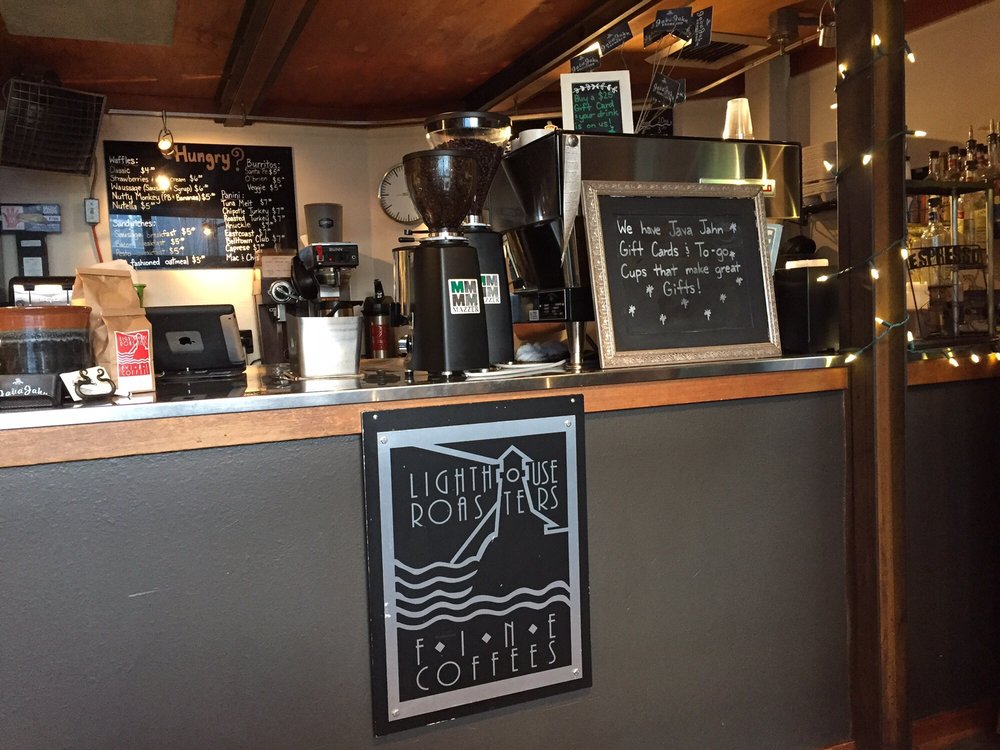 Hungry?
Waffles:
Classic $4
Strawberries + Cream $6
Waussage (Sausage + Syrup) $6
Nutty Monkey (PB + Bananas) $5
Nutella $5
Sandwiches:
Sausage Breakfast $5
Bacon Breakfast $5
Pesto
fashioned oatmeal $3
Burritos:
Santa Fe
O'brien $5
Veggie $5
Panini:
Tuna Melt $7
Chipotle Turkey $7
Roasted Turkey
Knuckle
Eastcoast
Belltown Club $7
Caprese $7
Mac & Chz
Buy a $25
Gift Card
& your drink
is on us!
We have Java Jahn
Gift Cards & To-go
Cups that make great
Gifts!
JavaJahn
BUNN
MAZZER
ESPRESSO
LIGHTHOUSE
ROASTERS
FINE
COFFEES
JavaJahn
LIGHTHOUSE
ROASTERS
F•I•N•E
COFFEES